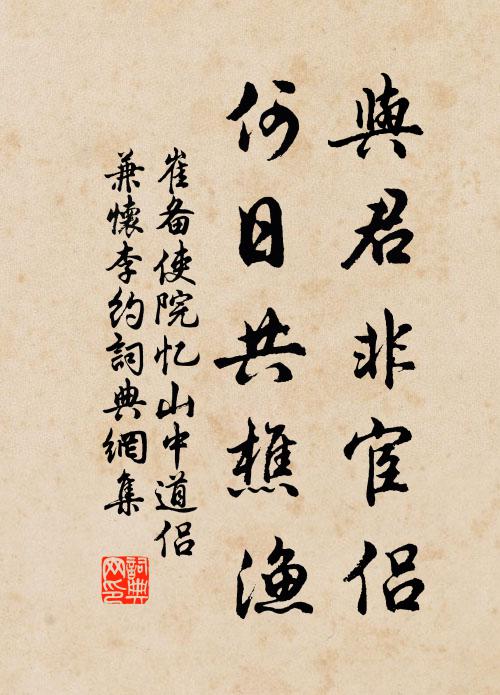 與君非宦侶
何日共樵漁
崔备使院忆山中道侣
兼懷李約詞典網集
詞典网印